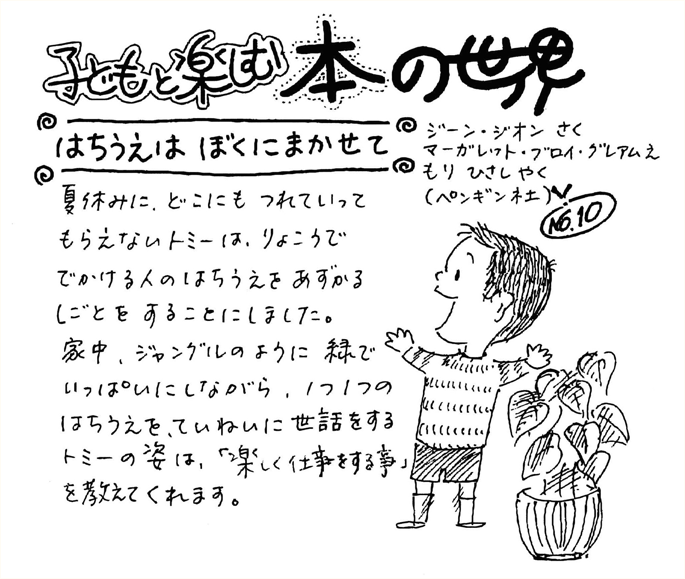 子どもと楽しむ 本の世界
はちうえは ぼくにまかせて
ジーン・ジオン さく
マーガレット・ブロイ・グレアムえ
もり ひさし やく
(ペンギン社)
No.10
夏休みに、どこにも つれていって
もらえないトミーは、りょこうで
でかける人のはちうえを あずかる
しごとを することにしました。
家中、ジャングルのように 緑で
いっぱいにしながら、1つ1つの
はちうえを、ていねいに 世話をする
トミーの姿は、「楽しく仕事をする事」
を教えてくれます。